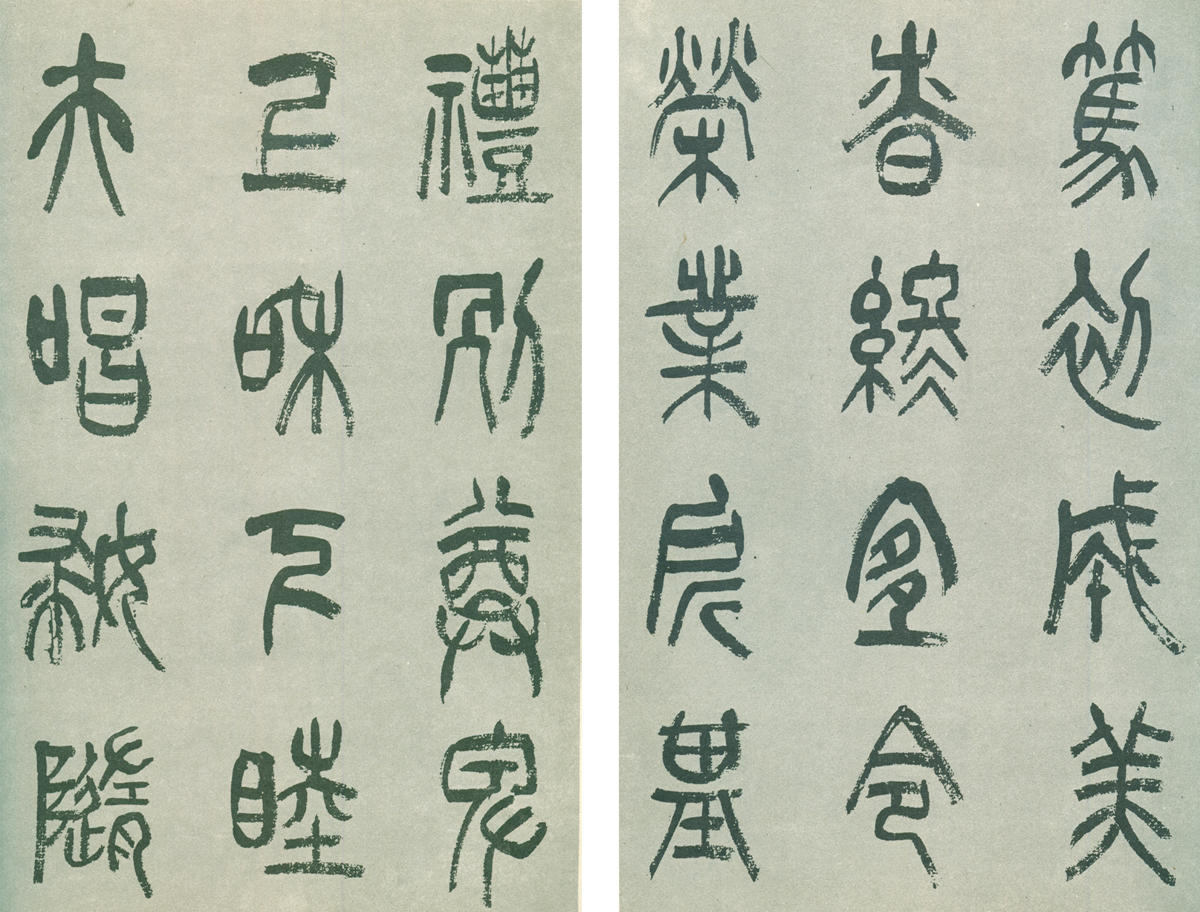 篤初誠美
慎終宜令
榮業所基
禮別尊卑
上和下睦
夫唱婦隨